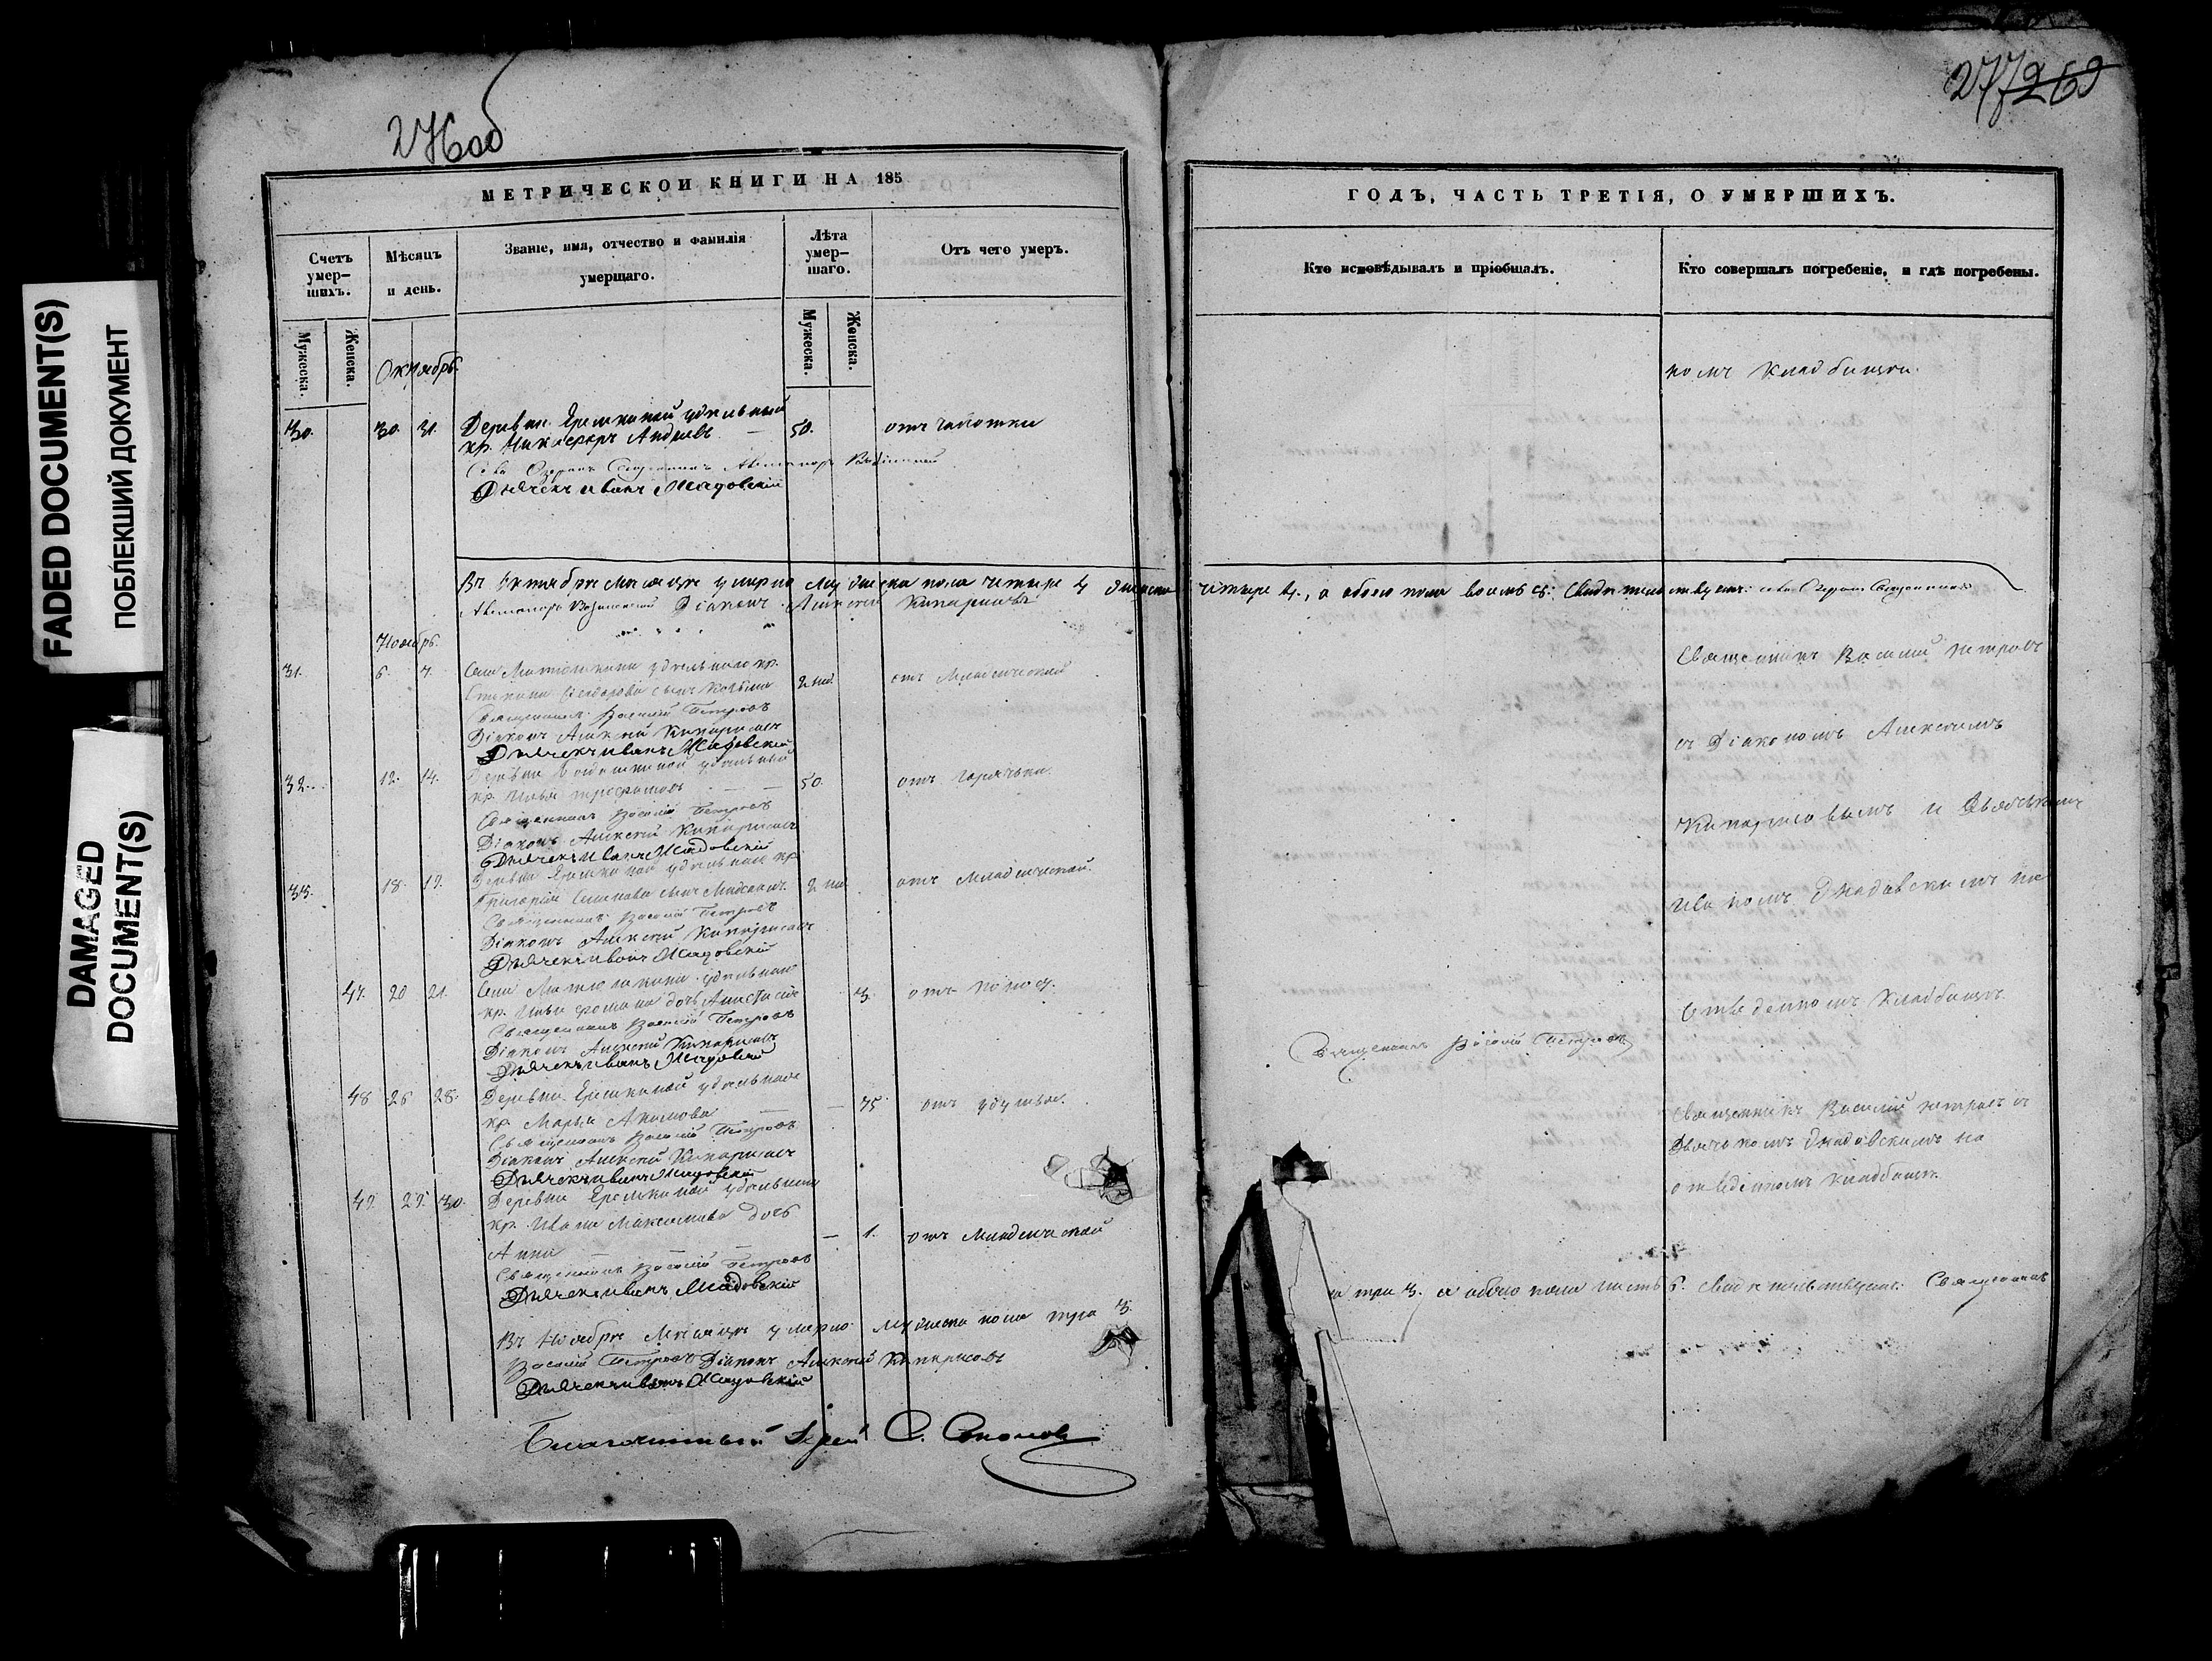 FADED DOCUMENT(S)
ПОБЛЕКШИЙ ДОКУМЕНТ
DAMAGED
DOCUMENT(S)
276 об
277 269
МЕТРИЧЕСКОИ КНИГИ НА 185
Счетъ умер-шихъ.
Мужеска.
Женска.
Мѣсяцъ и день.
Званіе, имя, отчество и фамилія
умершаго.
Лѣта умер-шаго.
Мужеска.
Женска.
Отъ чего умеръ.
Октябрь.
30. 30. 31. Деревни Еремкиной удѣльный 50. отъ чахотки
кр. Никифоръ Андреевъ
Села Озерокъ Священникъ
Дьячекъ Иванъ Жадовскій
Въ Октябрѣ мѣсяцѣ умерло мужеска пола четыре 4 женска
Діаконъ Алексей Кипарисовъ
Ноябрь.
31. 6. 7. Села Матюшкина удѣльнаго кр.
Степана сынъ Козьма 2 нед. отъ Младенческой
Священникъ Василій Петровъ
Діаконъ Алексей Кипарисовъ
Дьячекъ Иванъ Жадовскій
32. 12. 14. Деревни удѣльный
кр. Илья Трофимовъ 50. отъ горячьки
Священникъ Василій Петровъ
Діаконъ Алексей Кипарисовъ
Дьячекъ Иванъ Жадовскій
33. 18. 19. Деревни Еремкиной удѣльнаго кр.
Григорія сынъ 2 нед. отъ Младенческой.
Священникъ Василій Петровъ
Діаконъ Алексей Кипарисовъ
Дьячекъ Иванъ Жадовскій
47. 20 21. Села Матюшкина удѣльнаго
кр. Ильи дочь Анастасія 3. отъ поносу.
Священникъ Василій Петровъ
Діаконъ Алексей Кипарисовъ
Дьячекъ Иванъ Жадовскій
48 26 28. Деревни Еремкиной удѣльнаго
кр. Марья Акимова 75 отъ удушья.
Священникъ Василій Петровъ
Діаконъ Алексей Кипарисовъ
Дьячекъ Иванъ Жадовскій
49. 29. 30. Деревни Еремкиной удѣльнаго
кр. Ивана Максимова дочь
Анна 1. отъ Младенческой
Священникъ Василій Петровъ
Дьячекъ Иванъ Жадовскій
Въ Ноябрѣ мѣсяцѣ умерло мужеска пола три 3.
Василій Петровъ Діаконъ Алексей Кипарисовъ
Дьячекъ Иванъ Жадовскій
Благочинный Іерей С. Соколовъ
ГОДЪ, ЧАСТЬ ТРЕТІЯ, О УМЕРШИХЪ.
Кто исповѣдывалъ и пріобщалъ.
Кто совершалъ погребеніе, и гдѣ погребены.
номъ кладбищѣ.
четыре 4., а обоего пола восемь 8. Свидѣтельствуемъ: села Озерокъ Священникъ
Священникъ Василій Петровъ
съ Діакономъ Алексѣемъ
Кипарисовымъ и Дьячькомъ
Иваномъ Жадовскимъ на
отведенномъ кладбищѣ.
Священникъ Василій Петровъ
Священникъ Василій Петровъ съ
Дьячькомъ Жадовскимъ на
отведенномъ кладбищѣ.
на три 3. а обоего пола шесть 6. Свидѣтельствуемъ: Священникъ